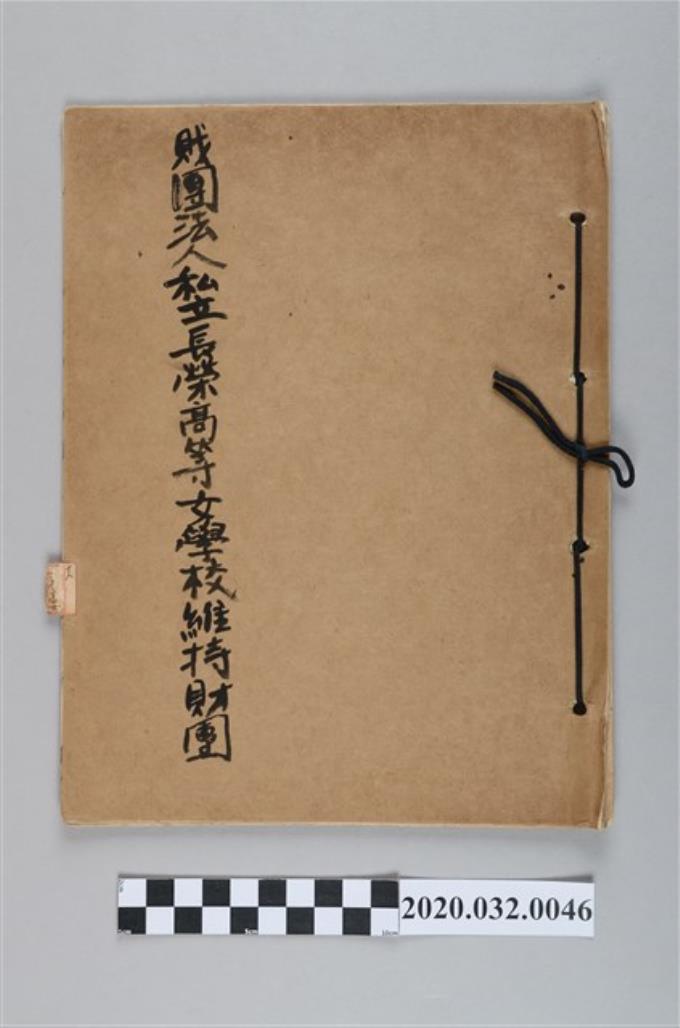 財團法人私立長榮高等女學校維持財團
0cm 5cm 10cm
2020.032.0046